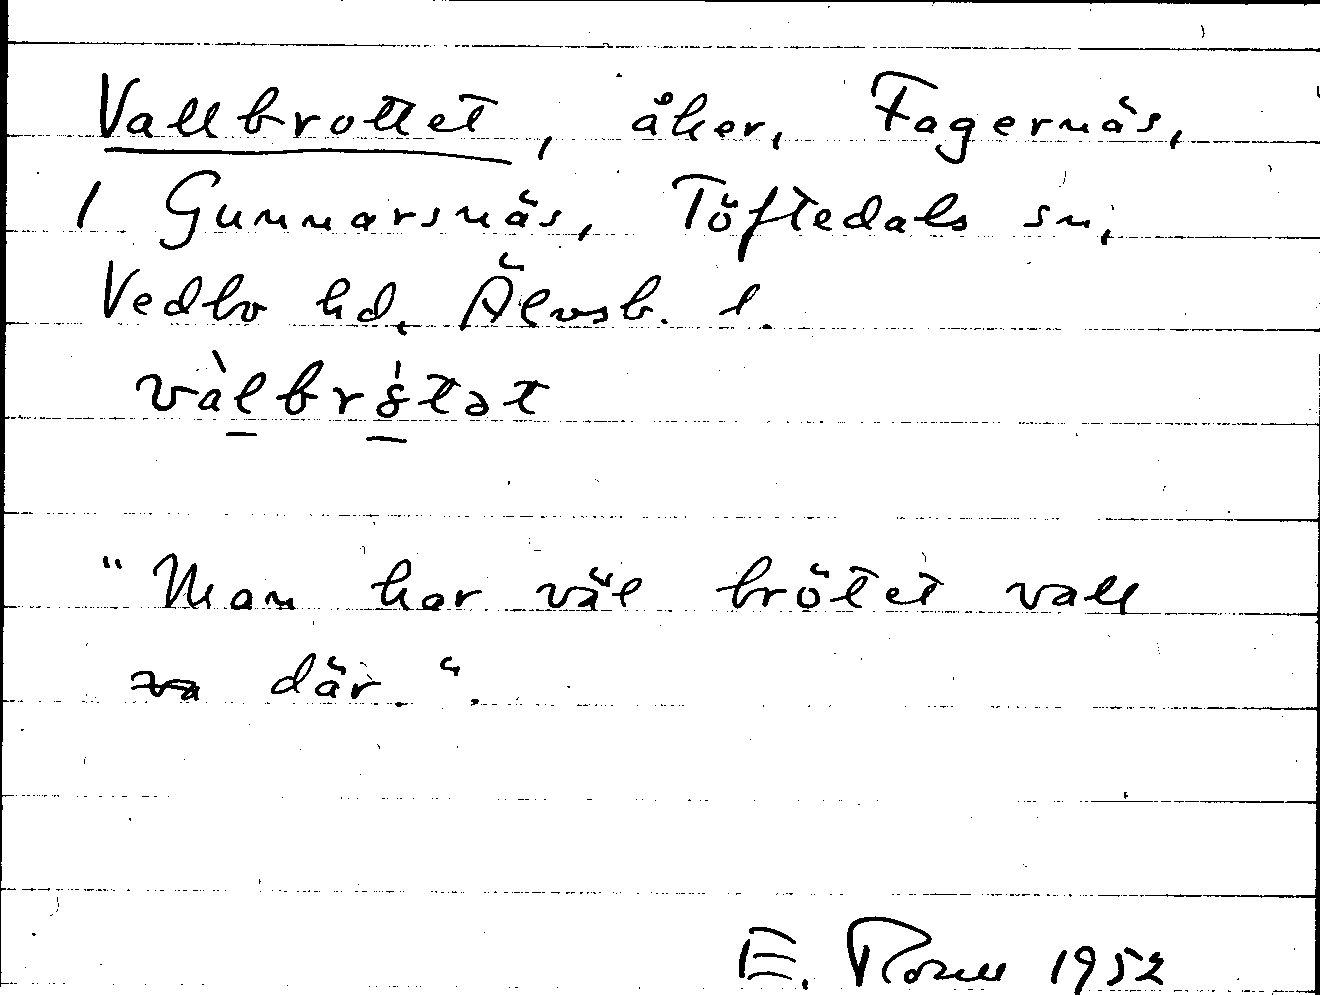 Vallbrottet, åker, Fagernäs,
1 Gunnarsnäs, Töftedals sn,
Vedbo hd, Älvsb. l.
"Man har väl brötet vall
där.".
E. Rosell 1952